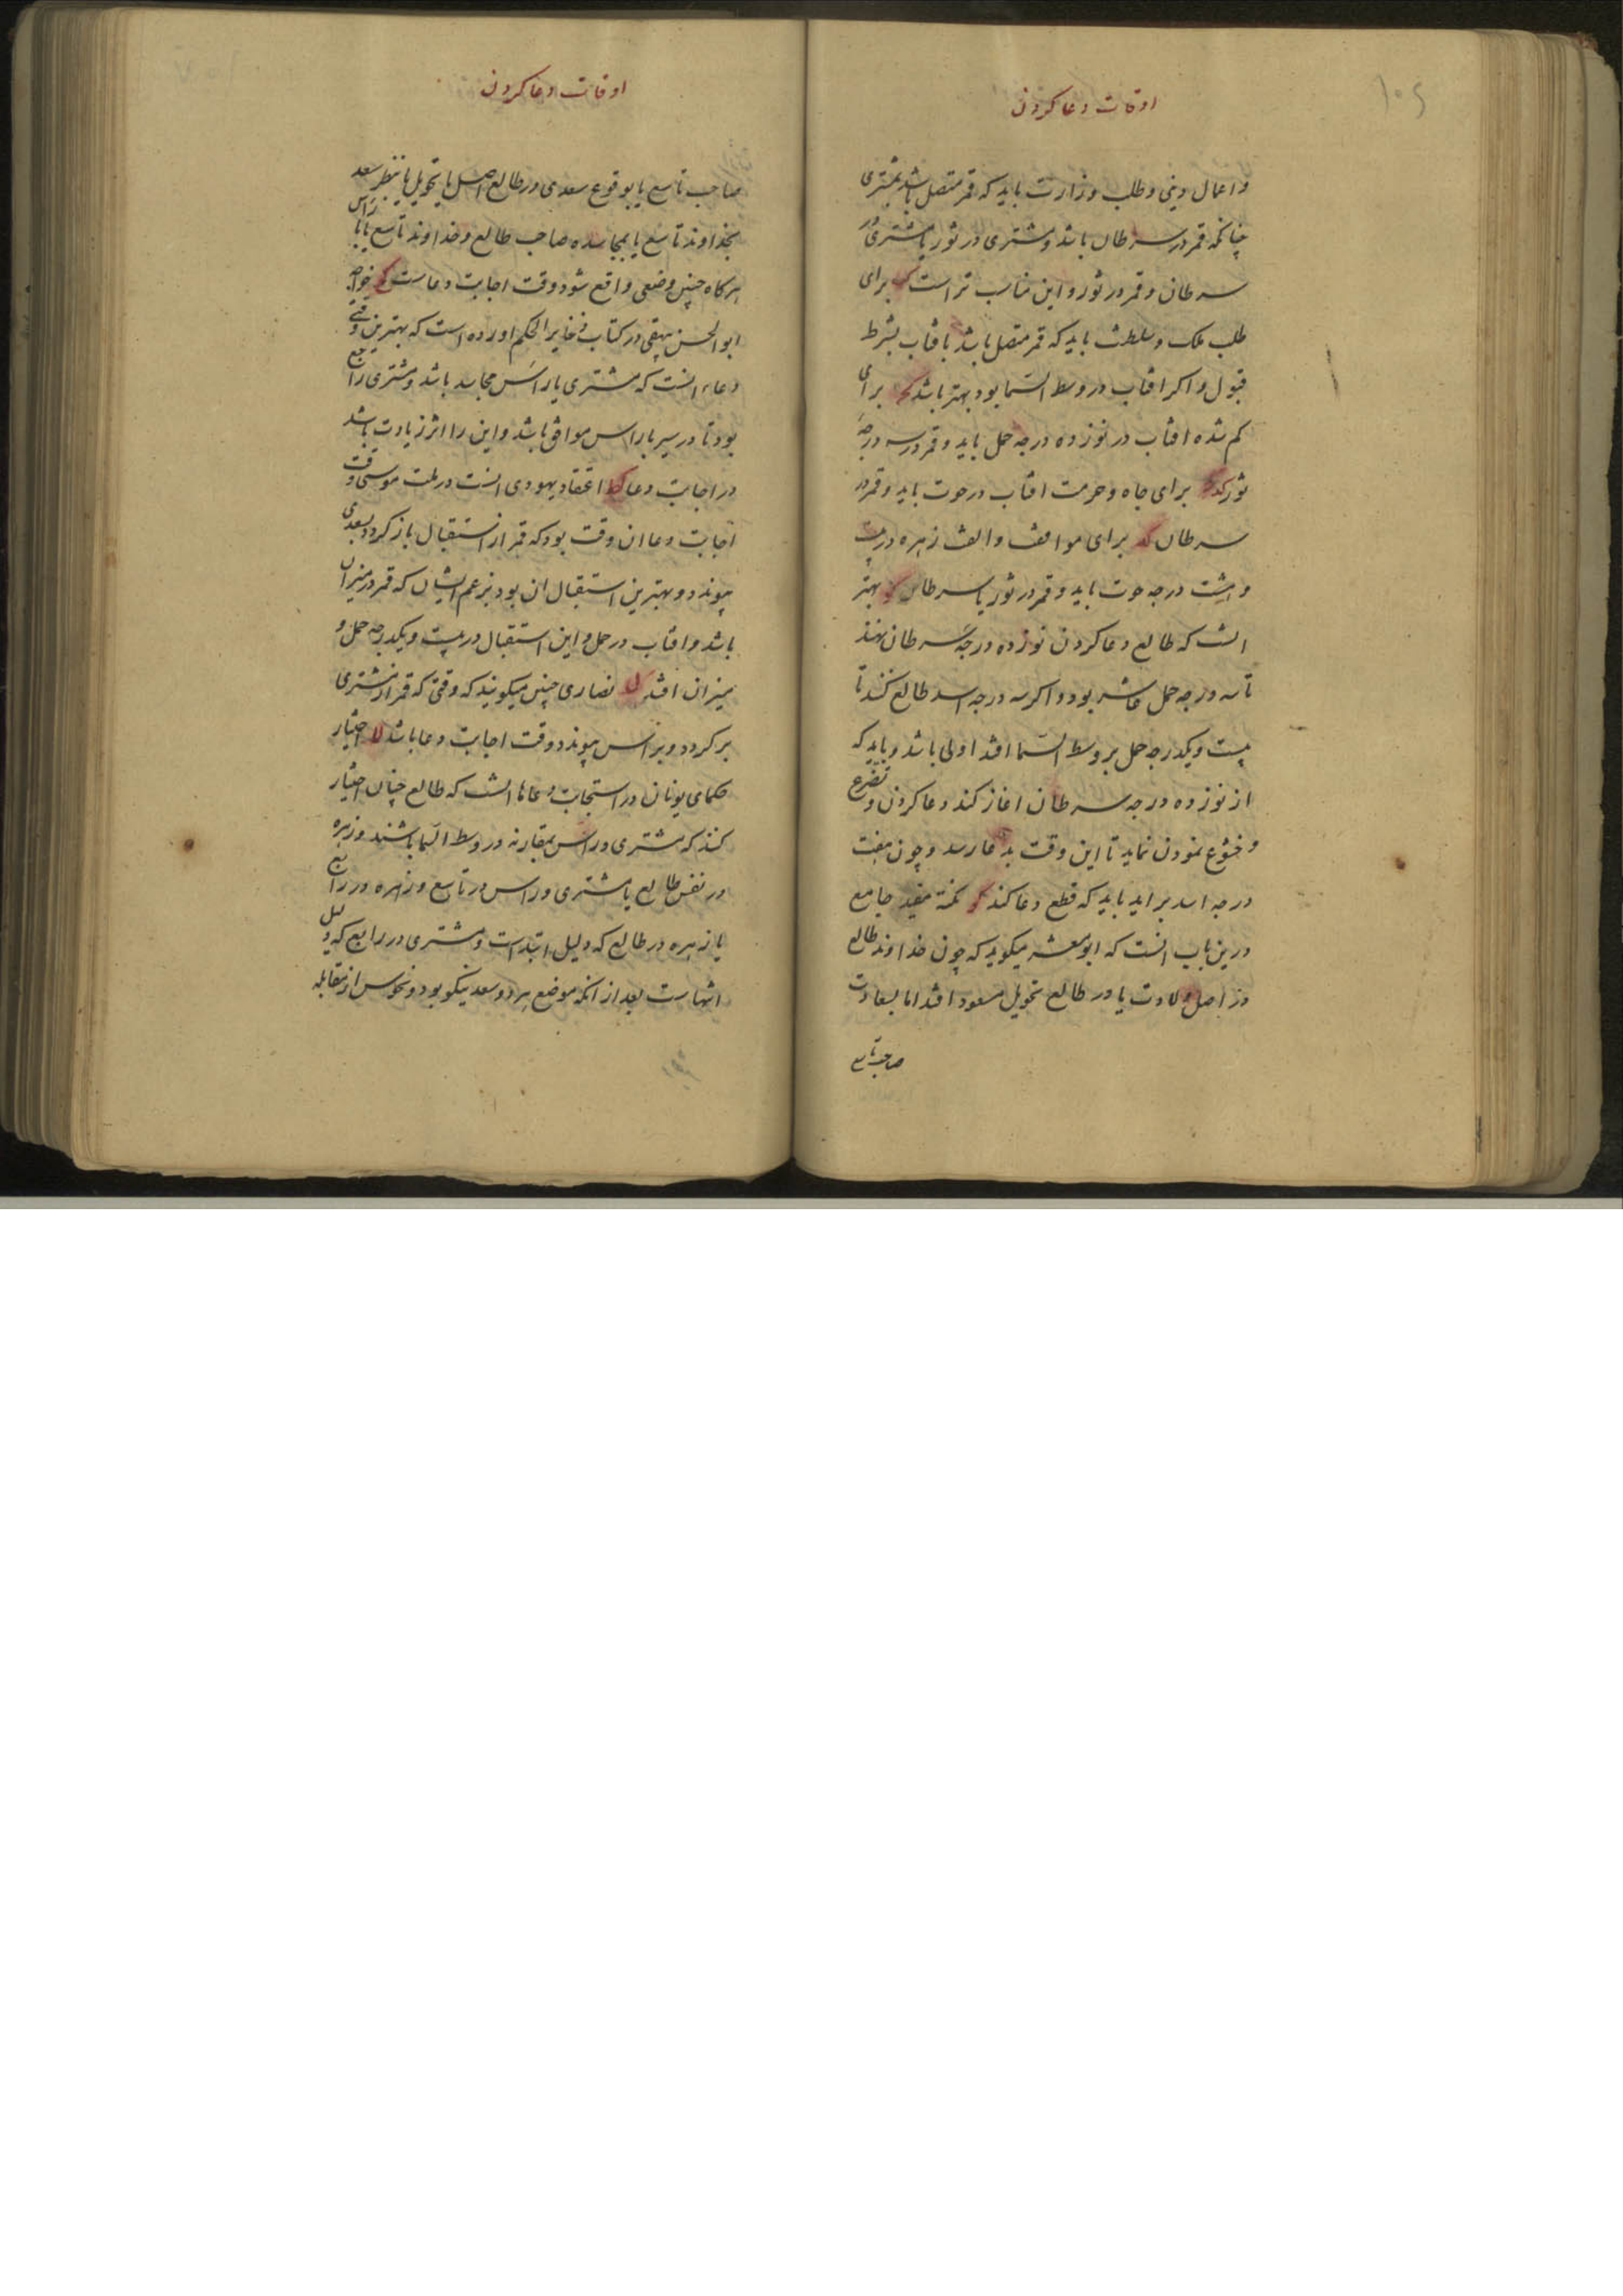 اوقات دعا کردن
واعمال دینی وطلب وزارت باید که قمر متصل باشد بمشتری
چنانکه قمر در سرطان باشد ومشتری در ثور یا مشتری در
سرطان وقمر در ثور واین مناسب تر است برای
طلب ملک وسلطنت باید که قمر متصل باشد بافتاب بشرط
قبول واکر افتاب در وسط السما بود بهتر باشد کج برای
کم شده افتاب در نوزده درجه حمل باید وقمر در سه درجه
ثور برای جاه وحرمت افتاب در حوت باید وقمر در
سرطان کد برای موالفت والفت زهره در بیست
وهشت درجه حوت باید وقمر در ثور یا سرطان بهتر
انست که طالع دعا کردن نوزده درجه سرطان نهند
تا سه درجه حمل عاشر بود واکر سه درجه اسد طالع کنند تا
بیست ویکدرجه حمل بر وسط السما افتد اولی باشد وباید که
از نوزده درجه سرطان اغاز کند دعا کردن وتضرع
وخشوع نمودن نماید تا این وقت بدعا رسد وچون هفت
درجه اسد براید باید که قطع دعا کند کو نکتة مفید جامع
درین باب انست که ابومعشر میکوید که چون خداوند طالع
در اصل ولادت یا در طالع تحویل مسعود افتد اما بسعادت
صاحب تاسع
۱۰۶
اوقات دعا کردن
صاحب تاسع یا بوقوع سعدی در طالع اصل یا تحویل یا بنظر سعد
بخداوند تاسع یا بمجاسده صاحب طالع وخداوند تاسع یا با راس
هرکاه چنین وضعی واقع شود وقت اجابت دعاست خواجه
ابوالحسن بیهقی در کتاب ذخایر الحکم اورده است که بهترین وقتی
دعاء انست که مشتری با راس مجاسد باشد ومشتری راجع
بود تا در سیر با راس موافق باشد واین را اثر زیادت باشد
در اجابت دعا کط اعتقاد یهودی انست در ملت موسی وقت
اجابت دعا ان وقت بود که قمر از استقبال باز کردد بسعدی
پیوندد وبهترین استقبال ان بود بزعم ایشان که قمر در میزان
باشد وافتاب در حمل واین استقبال در بیست ویکدرجه حمل و
میزان افتد ل نصاری چنین میکویند که وقتی که قمر از مشتری
برکردد وبراس پیوندد وقت اجابت دعا باشد لا اختیار
حکمای یونان در استجابت دعاها انست که طالع چنان اختیار
کنند که مشتری وراس بمقارنه در وسط السما باشند وزهره
در نفس طالع یا مشتری وراس در تاسع وزهره در رابع
یا زهره در طالع که دلیل ابتداست ومشتری در رابع که دلیل
انتهاست بعد از انکه موضع هر دو سعد نیکو بود ونحوس از مقابله